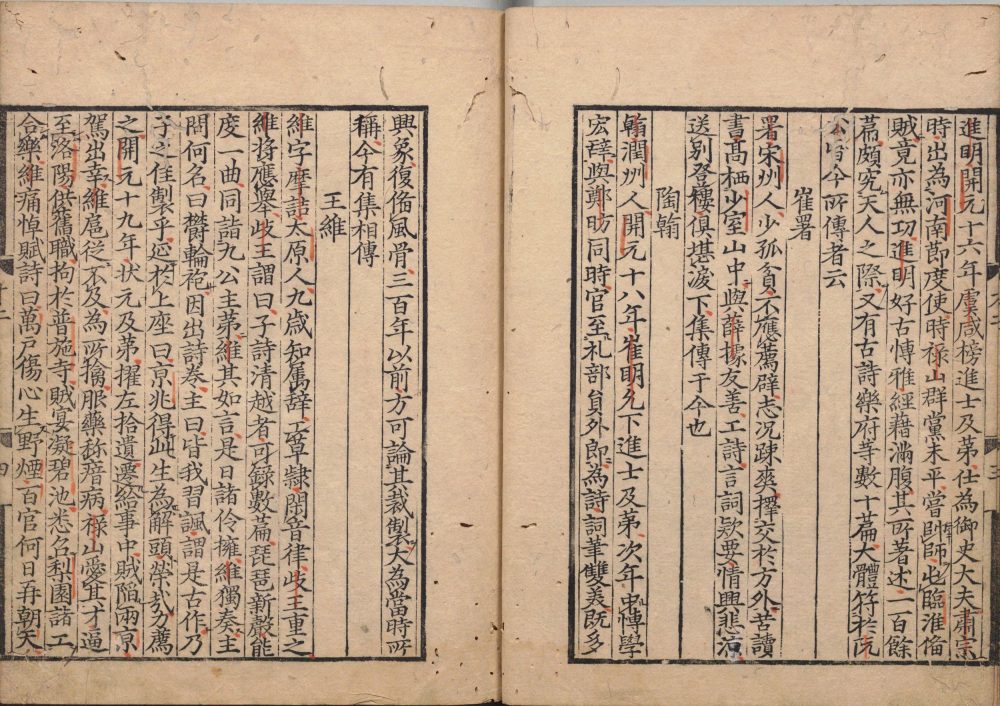 進明開元十六年虞咸榜進士及第仕為御史大夫肅宗
時出為河南節度使時祿山群黨未平嘗帥師屯臨淮俻
賊竟亦無功進明好古愽雅經藉滿腹其所著述一百餘
篇頗究天人之際又有古詩樂府等數十篇大體符於阮
公皆今所傳者云
崔署
署宋州人少孤貧不應薦辟志况疎爽擇交於方外苦讀
書髙栖少室山中與薛據友善工詩言詞欵要情興悲凉
送别登樓俱堪淚下集傳于今也
陶翰
翰潤州人開元十八年崔明允下進士及第次年中愽學
宏辭與鄭昉同時官至礼部貟外郎為詩詞筆雙美既多
興象復俻風骨三百年以前方可論其裁製大為當時所
稱今有集相傳
王維
維字摩詰太原人九歳知属辞工草隷閑音律歧王重之
維将應舉歧王謂曰子詩清越者可録數篇琵琶新聲能
度一曲同詣九公主第維其如言是日諸伶擁維獨奏主
問何名曰欝輪袍因出詩卷主曰皆我習諷謂是古作乃
子之佳製乎延於上座曰京兆得此生為解頭榮哉力薦
之開元十九年状元及第擢左拾遺遷給事中賊陷兩京
駕出幸維扈從不及為所擒服藥稱瘖病祿山愛其才逼
至洛陽供舊職拘於普施寺賊宴凝碧池悉召梨園諸工
合樂維痛悼賦詩曰萬戸傷心生野煙百官何日再朝天